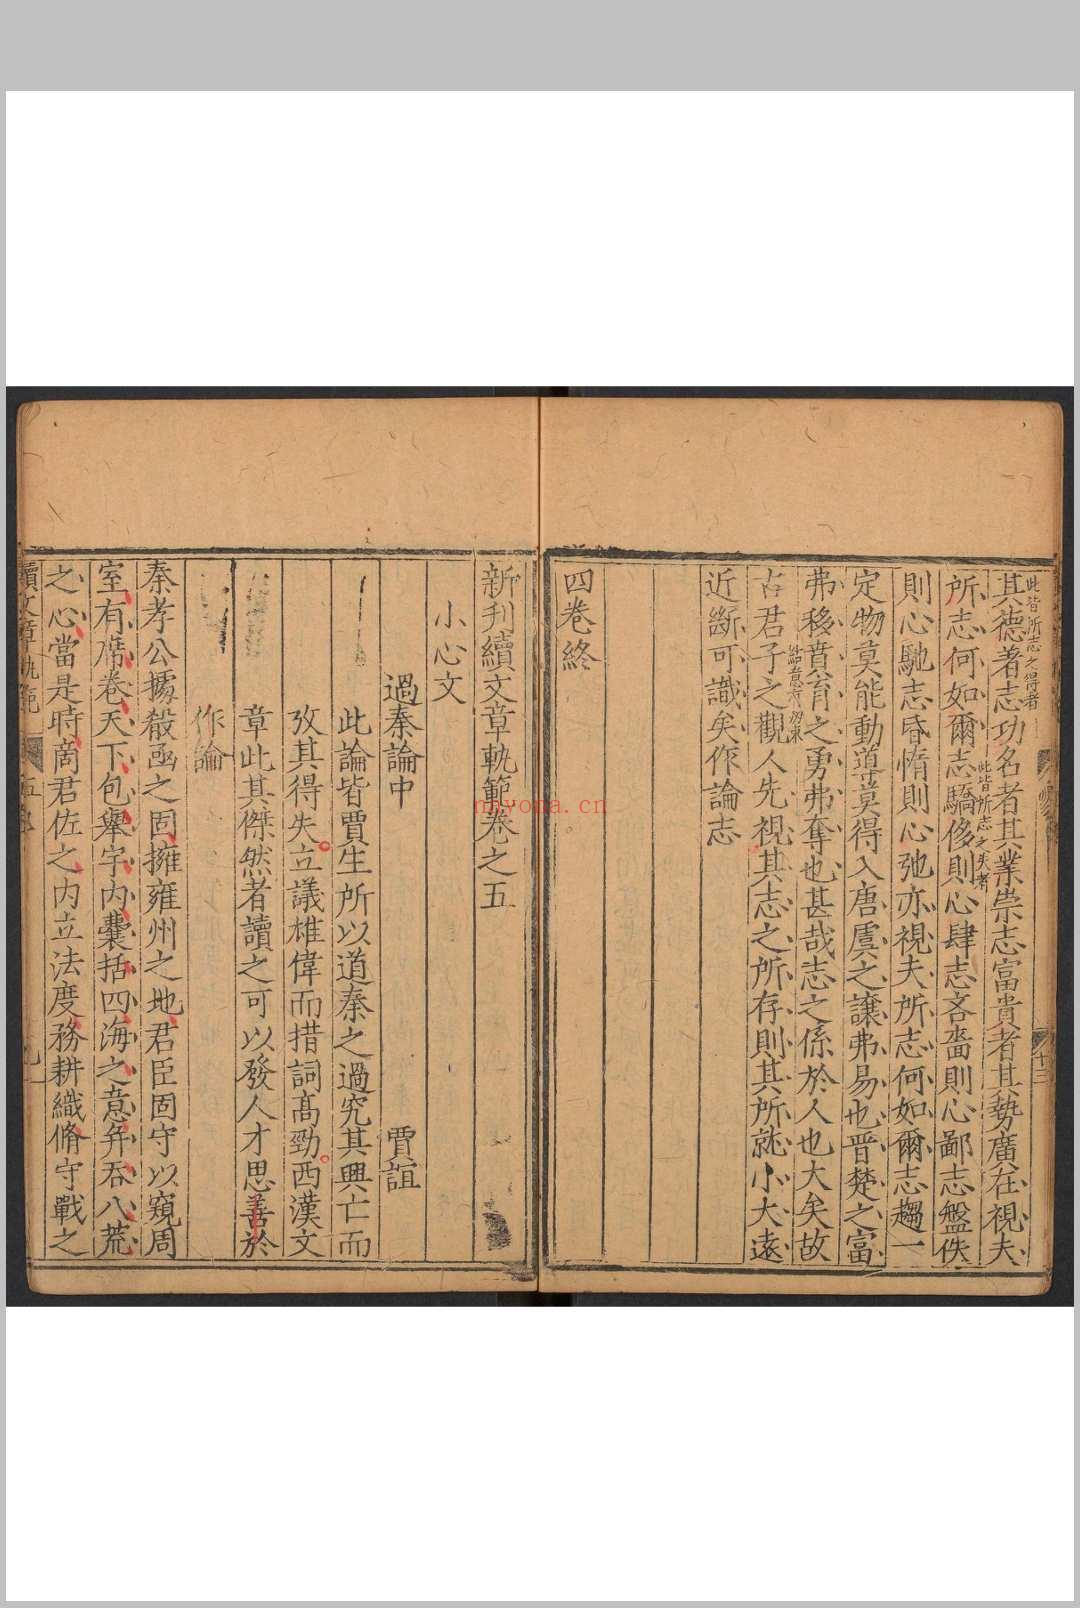 此皆所志之得者
其德著志功名者其業崇志富貴者其勢廣在視夫
此皆所志之失者
所志何如爾志驕侈則心肆志吝嗇則心鄙志盤佚
則心馳志昏惰則心弛亦視夫所志何如爾志趨一
定物莫能動導莫得入唐虞之讓弗易也晉楚之富
弗移賁育之勇弗奪也甚哉志之係於人也大矣故
古君子之觀人先視其志之所存則其所就小大遠
近斷可識矣作論志
四卷終
十三
新刊續文章軌範卷之五
小心文
過秦論中
賈誼
此論皆賈生所以道秦之過究其興亡而
攷其得失立議雄偉而措詞高勁西漢文
章此其傑然者讀之可以發人才思善於
作論
秦孝公據殽函之固擁雍州之地君臣固守以窺周
室有席卷天下包舉宇内囊括四海之意并吞八荒
之心當是時商君佐之内立法度務耕織脩守戰之
續文章軌範
nnyona.cn